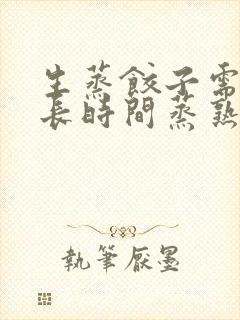 生蒸餃子需
長時間蒸熟
執筆厭墨